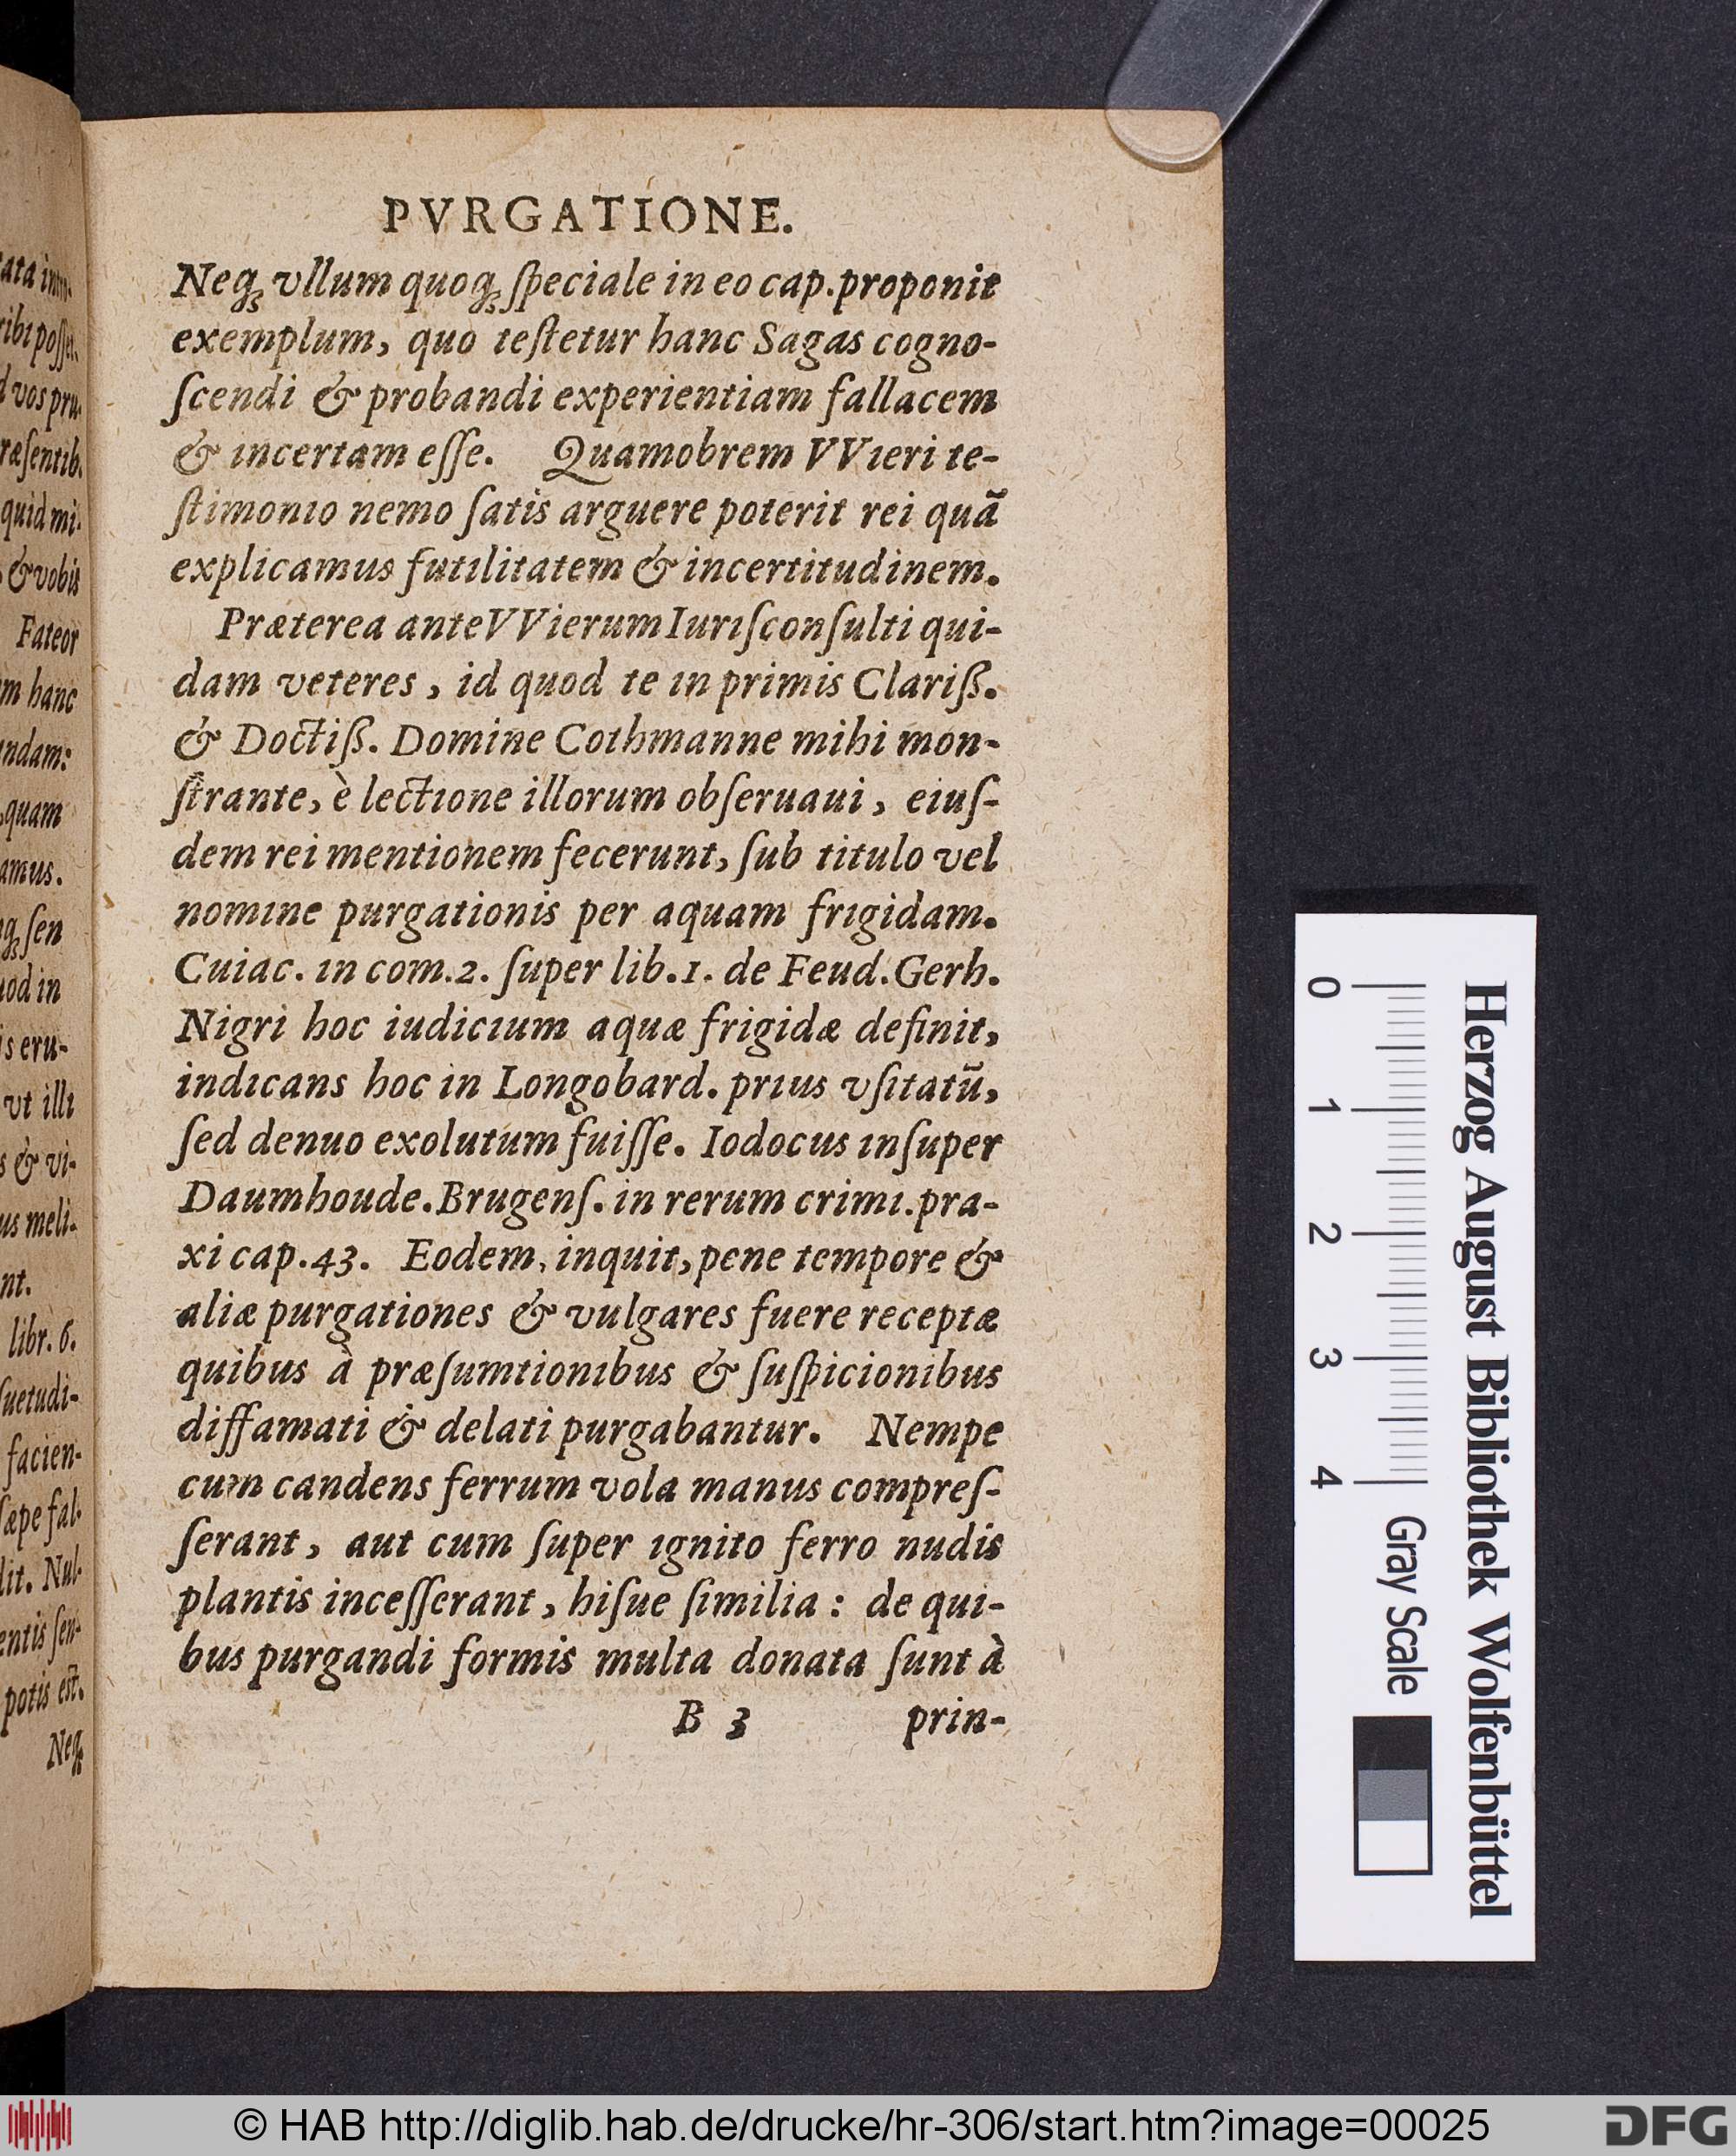 PVRGATIONE.
Neqꝫ vllum quoqꝫ ſpeciale in eo cap. proponit
exemplum, quo teſtetur hanc Sagas cogno-
ſcendi & probandi experientiam fallacem
& incertam eſſe. Quamobrem VVieri te-
ſtimonio nemo ſatis arguere poterit rei quā
explicamus futilitatem & incertitudinem.
Præterea ante VVierum Iuriſconſulti qui-
dam veteres, id quod te in primis Clariß.
& Doctiß. Domine Cothmanne mihi mon-
ſtrante, è lectione illorum obſeruaui, eiuſ-
dem rei mentionem fecerunt, ſub titulo vel
nomine purgationis per aquam frigidam.
Cuiac. in com.2. ſuper lib.1. de Feud. Gerh.
Nigri hoc iudicium aquæ frigidæ definit,
indicans hoc in Longobard. prius vſitatū,
ſed denuo exolutum fuiſſe. Iodocus inſuper
Daumhoude. Brugenſ. in rerum crimi. pra-
xi cap.43. Eodem, inquit, pene tempore &
aliæ purgationes & vulgares fuere receptæ
quibus à præſumtionibus & ſuſpicionibus
diffamati & delati purgabantur. Nempe
cum candens ferrum vola manus compreſ-
ſerant, aut cum ſuper ignito ferro nudis
plantis inceſſerant, hiſue ſimilia: de qui-
bus purgandi formis multa donata ſunt à
B 3 prin-
ribi poſſet.
d vos pru-
ræſentib.
quid mi-
& vobis
Fateor
m hanc
ndam:
quam
amus.
qꝫ ſen
uod in
is eru-
vt illi
s & vi-
us meli-
nt.
libr. 6.
ſuetudi-
facien-
ſæpe fal-
lit. Nul-
entis ſen-
potis eſt.
Neqꝫ
Herzog August Bibliothek Wolfenbüttel
0 1 2 3 4 Gray Scale
© HAB http://diglib.hab.de/drucke/hr-306/start.htm?image=00025
DFG